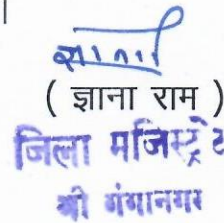 ( ज्ञाना राम )
जिला मजिस्ट्रेट
श्री गंगानगर